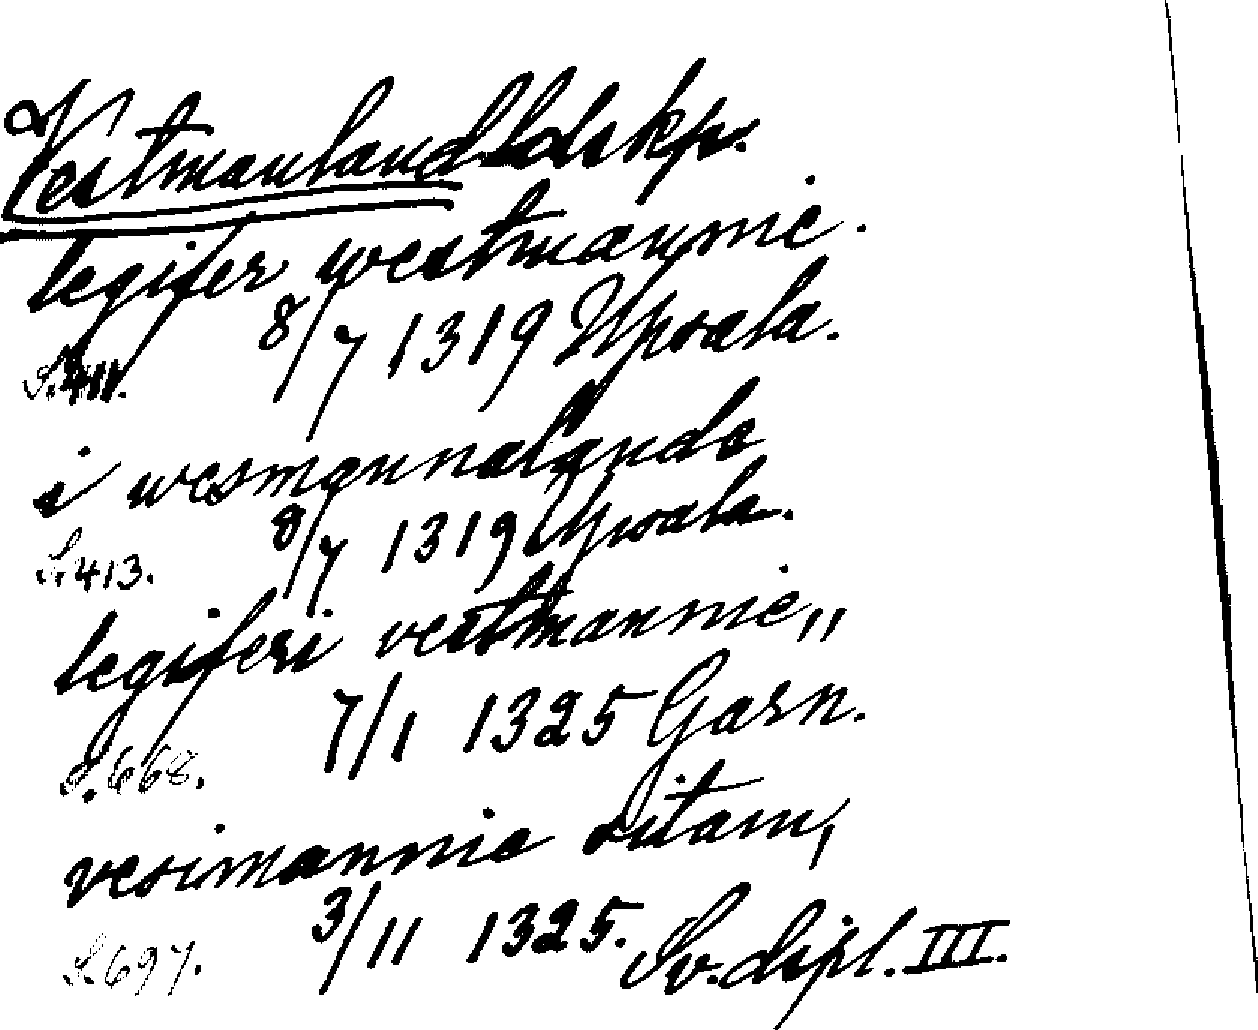 Vestmanland ldskp.
legifer westmannie.
S. 411. 8/7 1319 Upsala.
i wesmannalande
S. 413. 8/7 1319 Upsala.
legiferi vestmannie,,
S. 668. 7/1 1325 Garn.
vesimannie sitam,
S. 697. 3/11 1325. Sv. dipl. III.